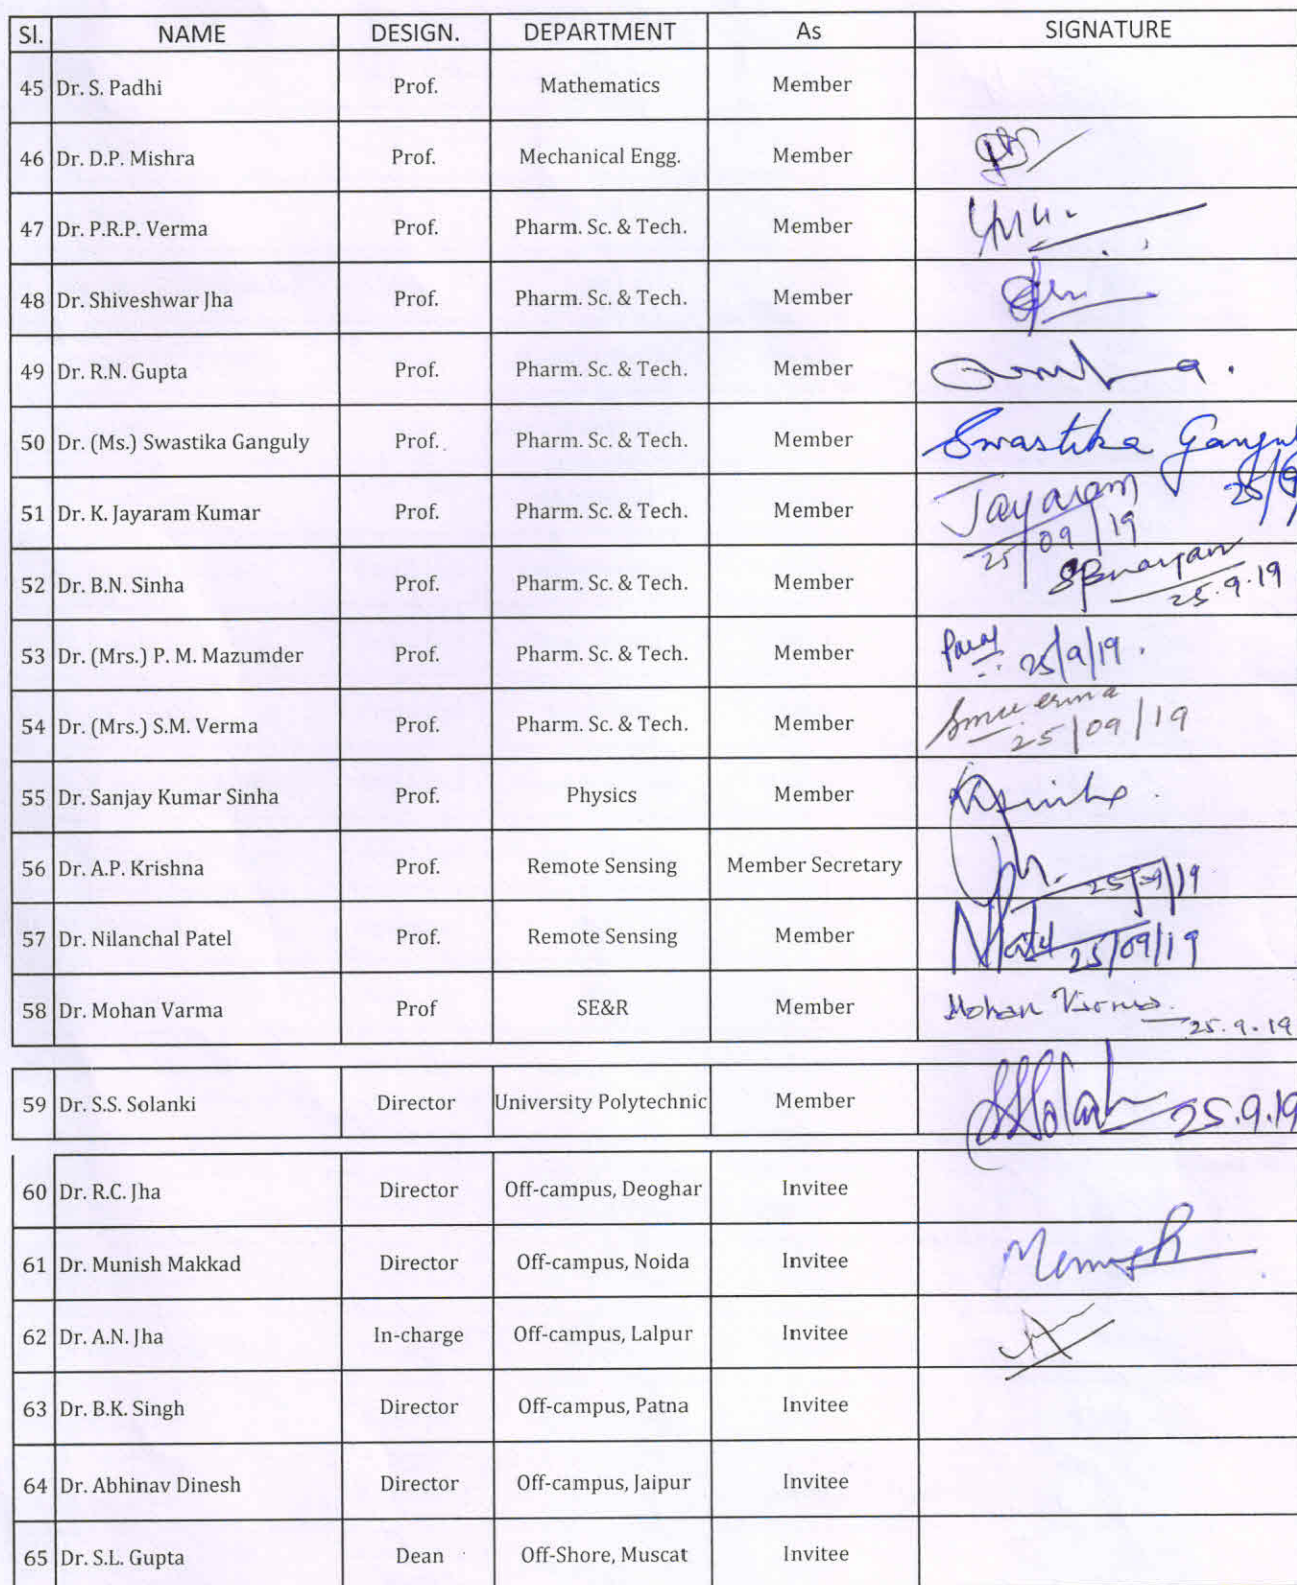 Sl. NAME DESIGN. DEPARTMENT As SIGNATURE
45 Dr. S. Padhi Prof. Mathematics Member
46 Dr. D.P. Mishra Prof. Mechanical Engg. Member
47 Dr. P.R.P. Verma Prof. Pharm. Sc. & Tech. Member
48 Dr. Shiveshwar Jha Prof. Pharm. Sc. & Tech. Member
49 Dr. R.N. Gupta Prof. Pharm. Sc. & Tech. Member
50 Dr. (Ms.) Swastika Ganguly Prof. Pharm. Sc. & Tech. Member Swastika Gangul
25/9
51 Dr. K. Jayaram Kumar Prof. Pharm. Sc. & Tech. Member Jayaram
25/09/19
52 Dr. B.N. Sinha Prof. Pharm. Sc. & Tech. Member
25.9.19
53 Dr. (Mrs.) P. M. Mazumder Prof. Pharm. Sc. & Tech. Member 25/9/19.
54 Dr. (Mrs.) S.M. Verma Prof. Pharm. Sc. & Tech. Member
25/09/19
55 Dr. Sanjay Kumar Sinha Prof. Physics Member
56 Dr. A.P. Krishna Prof. Remote Sensing Member Secretary 25/09/19
57 Dr. Nilanchal Patel Prof. Remote Sensing Member 25/09/19
58 Dr. Mohan Varma Prof SE&R Member Mohan Varma
25.9.19
59 Dr. S.S. Solanki Director University Polytechnic Member 25.9.19
60 Dr. R.C. Jha Director Off-campus, Deoghar Invitee
61 Dr. Munish Makkad Director Off-campus, Noida Invitee Munish
62 Dr. A.N. Jha In-charge Off-campus, Lalpur Invitee
63 Dr. B.K. Singh Director Off-campus, Patna Invitee
64 Dr. Abhinav Dinesh Director Off-campus, Jaipur Invitee
65 Dr. S.L. Gupta Dean Off-Shore, Muscat Invitee